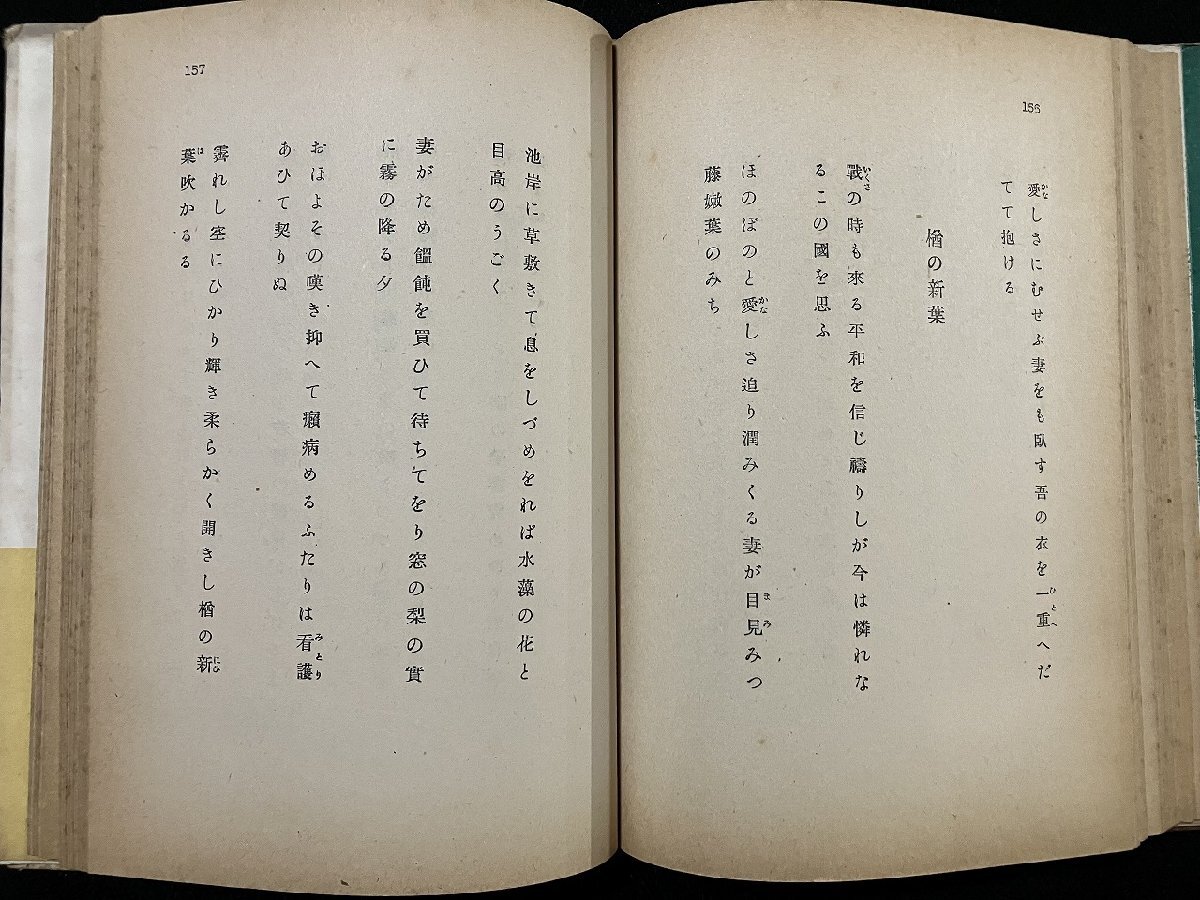 156
愛しさにむせぶ妻をも臥す吾の衣を一重へだ
てて抱ける
楢の新葉
戰の時も來る平和を信じ禱りしが今は憐れな
るこの國を思ふ
ほのぼのと愛しさ迫り潤みくる妻が目見みつ
藤嫩葉のみち
157
池岸に草敷きて息をしづめをれば水藻の花と
目高のうごく
妻がため饂飩を買ひて待ちてをり窓の梨の實
に霧の降る夕
おほよその嘆き抑へて癩病めるふたりは看護
あひて契りぬ
霽れし空にひかり輝き柔らかく開きし楢の新
葉吹かるる